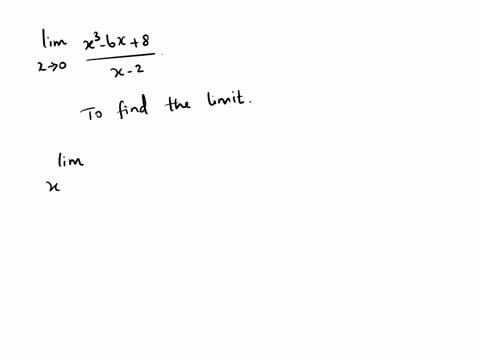 lim x³-6x+8
x→0 x-2
To find the limit.
lim
x